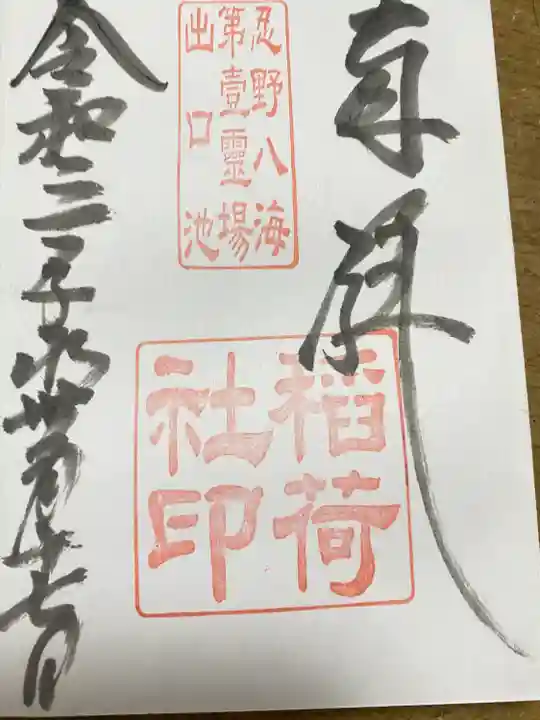 奉拝
忍野八海
第壹靈場
出口池
稲荷
社印
令和二年水無月十七日